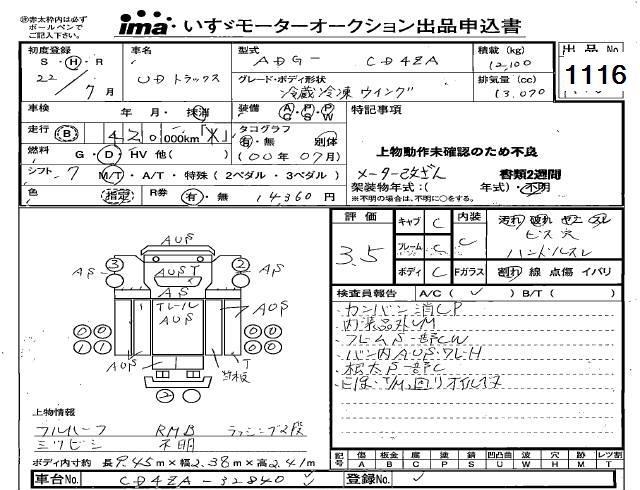 ※赤太枠内は必ず
ボールペンで
ご記入下さい。
ima いすゞモーターオークション出品申込書
初度登録 S・H・R 22 / 7月
車名 UDトラックス
型式 ADG- CD4ZA
積載 (kg) 12,100
出品No. 1116
グレード・ボディ形状 冷蔵冷凍ウイング
排気量 (cc) 13,070
車検 年 月・抹消
装備 A/G・P/S・P/W
特記事項
走行 B 420,000km「*」
タコグラフ 有・無 別体
上物動作未確認のため不良
燃料 G・D・HV 他( )
(00年07月)
メーター改ざん 書類2週間
シフト 7 M/T・A/T・特殊(2ペダル・3ペダル)
架装物年式:( 年式)・不明
※不明の場合は、不明に○をする。
色 指定 R券 有・無 14,360円
評価 3.5
キャブ C
フレーム C
ボディ C
内装 C
汚れ 破れ
ビス穴
ハンドルスレ
Fガラス 割れ 線 点傷 イバリ
検査員報告 A/C( ✓ ) B/T( )
カンバン消CP
フレームS一部CW
AUS
3 2
AS AS
AUST
AS
Tレール
AUS
AUS
AUS
T
2
上物情報
フルハーフ RMB ラッシング2段
ミツビシ 不明
ボディ内寸約 長9.45m×幅2.38m×高2.41m
記号 傷A 板金B 腐C 塗P 錆S 凹凸曲U 波W 穴H 跡M レツ割T
車台No. CD4ZA-32840 ✓
登録No. ✓